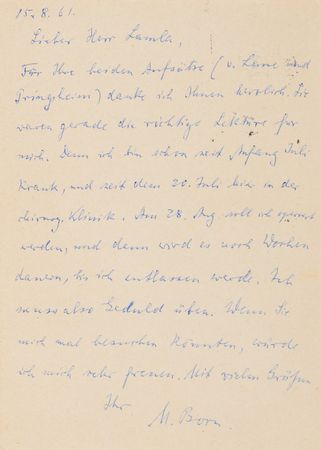 15. 8. 61.
Lieber Herr Lamla,
Für Ihre beiden Aufsätze (v. Laue und
Pringsheim) danke ich Ihnen herzlich. Sie
waren gerade die richtige Lektüre für
mich. Denn ich bin schon seit Anfang Juli
krank, und seit dem 20. Juli hier in der
chirurg. Klinik. Am 28. Aug. soll ich operiert
werden, und dann wird es noch Wochen
dauern, bis ich entlassen werde. Ich
muss also Geduld üben. Wenn Sie
mich mal besuchen könnten, würde
ich mich sehr freuen. Mit vielen Grüßen
Ihr M. Born.